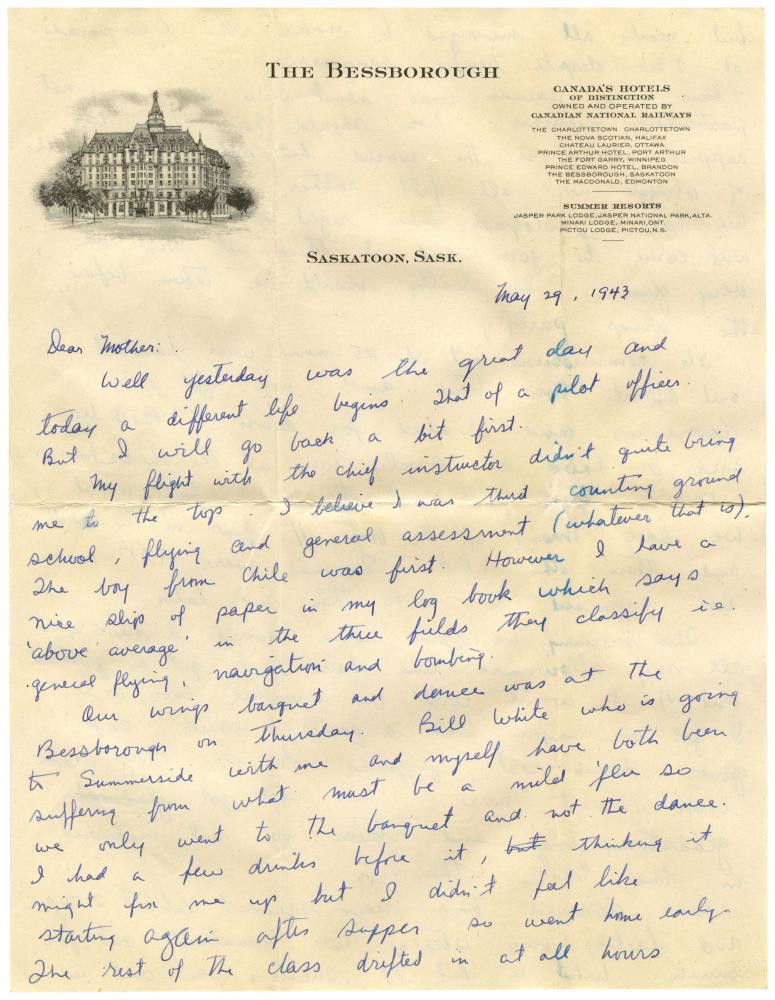 THE BESSBOROUGH
CANADA'S HOTELS
OF DISTINCTION
OWNED AND OPERATED BY
CANADIAN NATIONAL RAILWAYS
THE CHARLOTTETOWN CHARLOTTETOWN
THE NOVA SCOTIAN, HALIFAX
CHATEAU LAURIER, OTTAWA
PRINCE ARTHUR HOTEL, PORT ARTHUR
THE FORT GARRY, WINNIPEG
PRINCE EDWARD HOTEL, BRANDON
THE BESSBOROUGH, SASKATOON
THE MACDONALD, EDMONTON
SUMMER RESORTS
JASPER PARK LODGE, JASPER NATIONAL PARK, ALTA.
MINAKI LODGE, MINAKI, ONT.
PICTOU LODGE, PICTOU, N.S.
SASKATOON, SASK.
May 29, 1943
Dear Mother:
Well yesterday was the great day and
today a different life begins. That of a pilot officer.
But I will go back a bit first.
My flight with the chief instructor didn't quite bring
me to the top. I believe I was third counting ground
school, flying and general assessment (whatever that is).
The boy from Chile was first. However I have a
nice slip of paper in my log book which says
'above average' in the three fields they classify i.e.
general flying, navigation and bombing.
Our wings banquet and dance was at the
Bessborough on Thursday. Bill White who is going
to Summerside with me and myself have both been
suffering from what must be a mild 'flu so
we only went to the banquet and not the dance.
I had a few drinks before it, but thinking it
might fix me up but I didn't feel like
starting again after supper so went home early.
The rest of the class drifted in at all hours